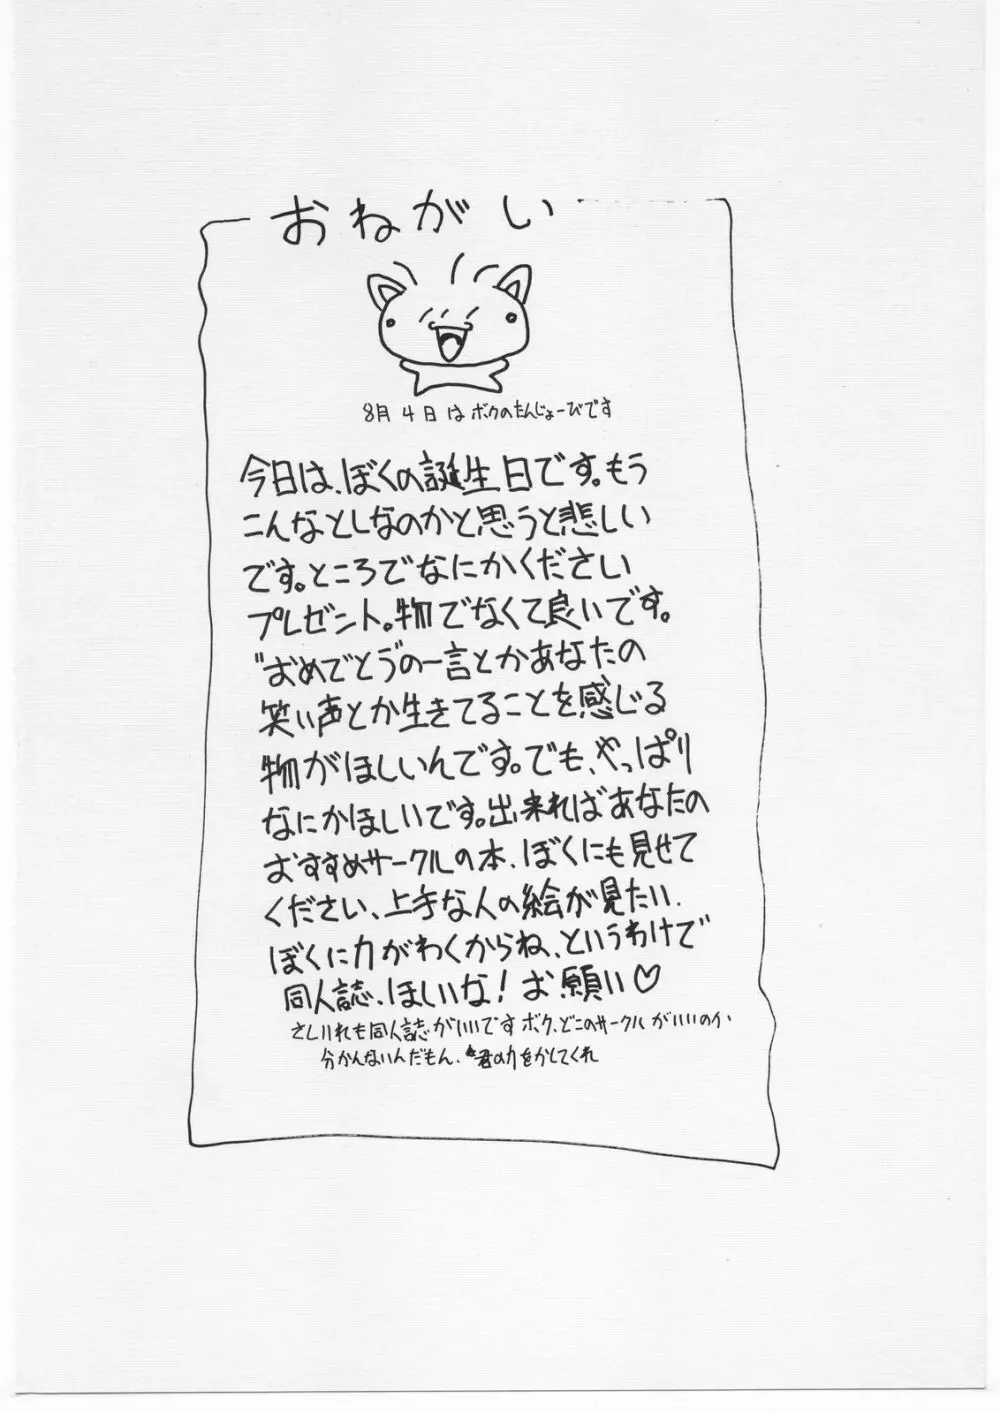 おねがい
8月4日はボクのたんじょーびです
今日は、ぼくの誕生日です。もう
こんなとしなのかと思うと悲しい
です。ところでなにかください
プレゼント。物でなくて良いです。
"おめでとう"の一言とかあなたの
笑い声とか生きてることを感じる
物がほしいんです。でも、やっぱり
なにかほしいです。出来ればあなたの
おすすめサークルの本、ぼくにも見せて
ください、上手な人の絵が見たい、
ぼくに力がわくからね、というわけで
同人誌、ほしいな！お願い♡
さしいれも同人誌がいいです ボク、どこのサークルがいいのか
分かんないんだもん、君の力をかしてくれ